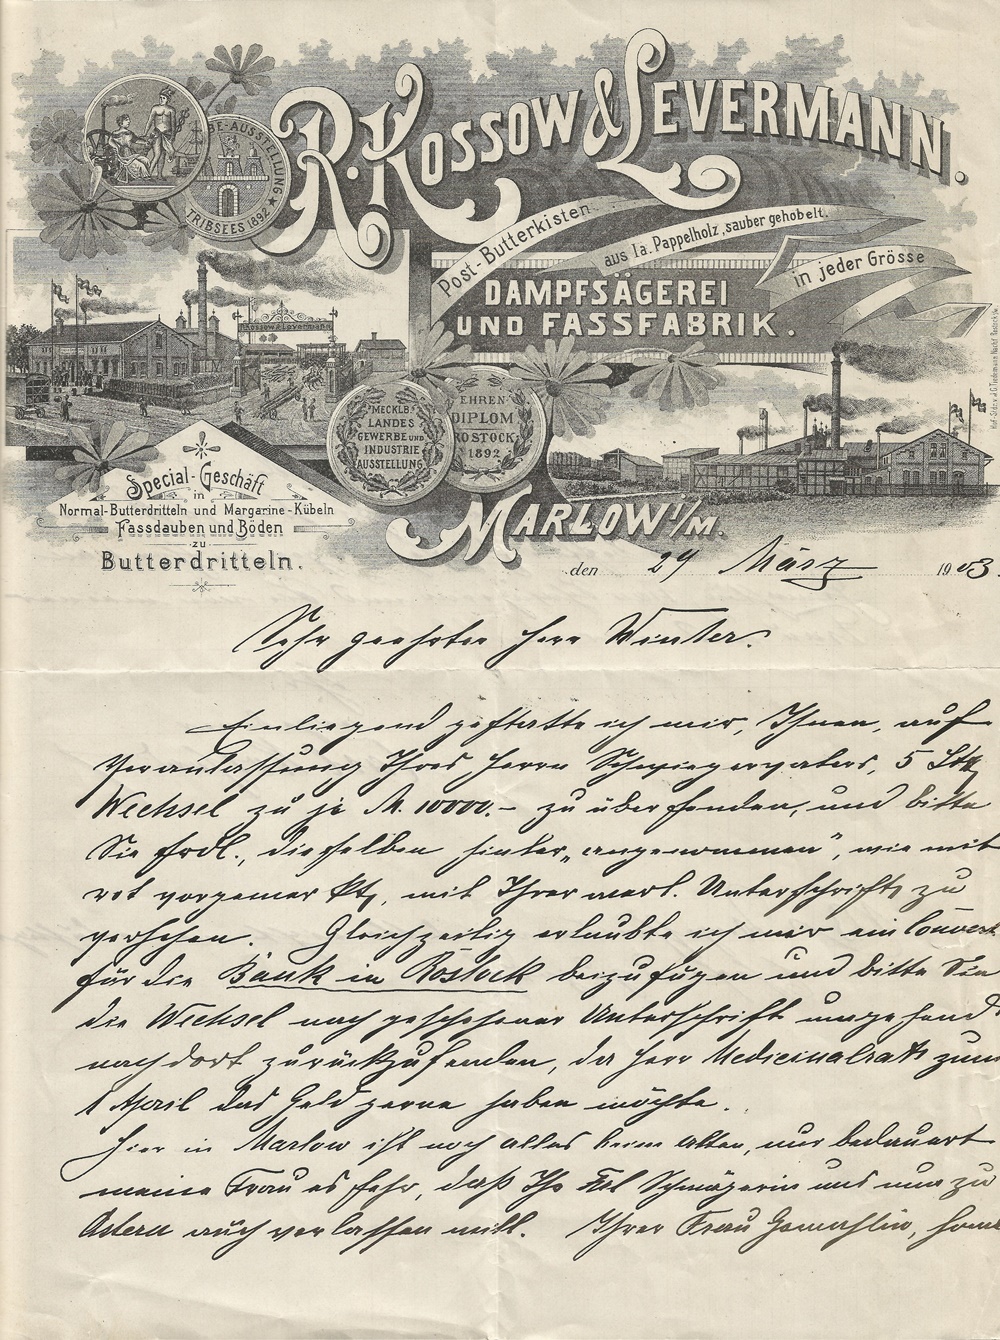 R. Kossow & Levermann.
BE-AUSSTELLUNG
TRIBSEES 1892
Post-Butterkisten
aus Ia. Pappelholz, sauber gehobelt.
in jeder Grösse
DAMPFSÄGEREI
UND FASSFABRIK.
Kossow & Levermann
MECKLB.
LANDES
GEWERBE UND
INDUSTRIE
AUSSTELLUNG
EHREN-
DIPLOM
ROSTOCK
1892
Special-Geschäft
in
Normal-Butterdritteln und Margarine-Kübeln
Fassdauben und Böden
zu
Butterdritteln.
MARLOW i/M.
den 29 März 1903.
Sehr geehrter Herr Winter.
Einliegend gestatte ich mir, Ihnen, auf
Veranlassung Ihres Herrn Schwiegervaters, 5 Stk
Wechsel zu je M. 10000.- zu übersenden, und bitte
Sie frdl., dieselben hinter „angenommen“, wie mit
rot vorgemerkt, mit Ihrer werl. Unterschrift zu
versehen. Gleichzeitig erlaubte ich mir ein Couvert
für die Bank in Rostock beizufügen und bitte Sie
die Wechsel nach geschehener Unterschrift umgehend
nach dort zurückzusenden, da Herr Medicinalrat zum
1 April das Geld gerne haben möchte.
Hier in Marlow ist noch alles beim alten, nur bedauert
meine Frau es sehr, daß Ihr Frl Schwägerin uns nun zu
Ostern auch verlassen will. Ihrer Frau Gemahlin, sowie